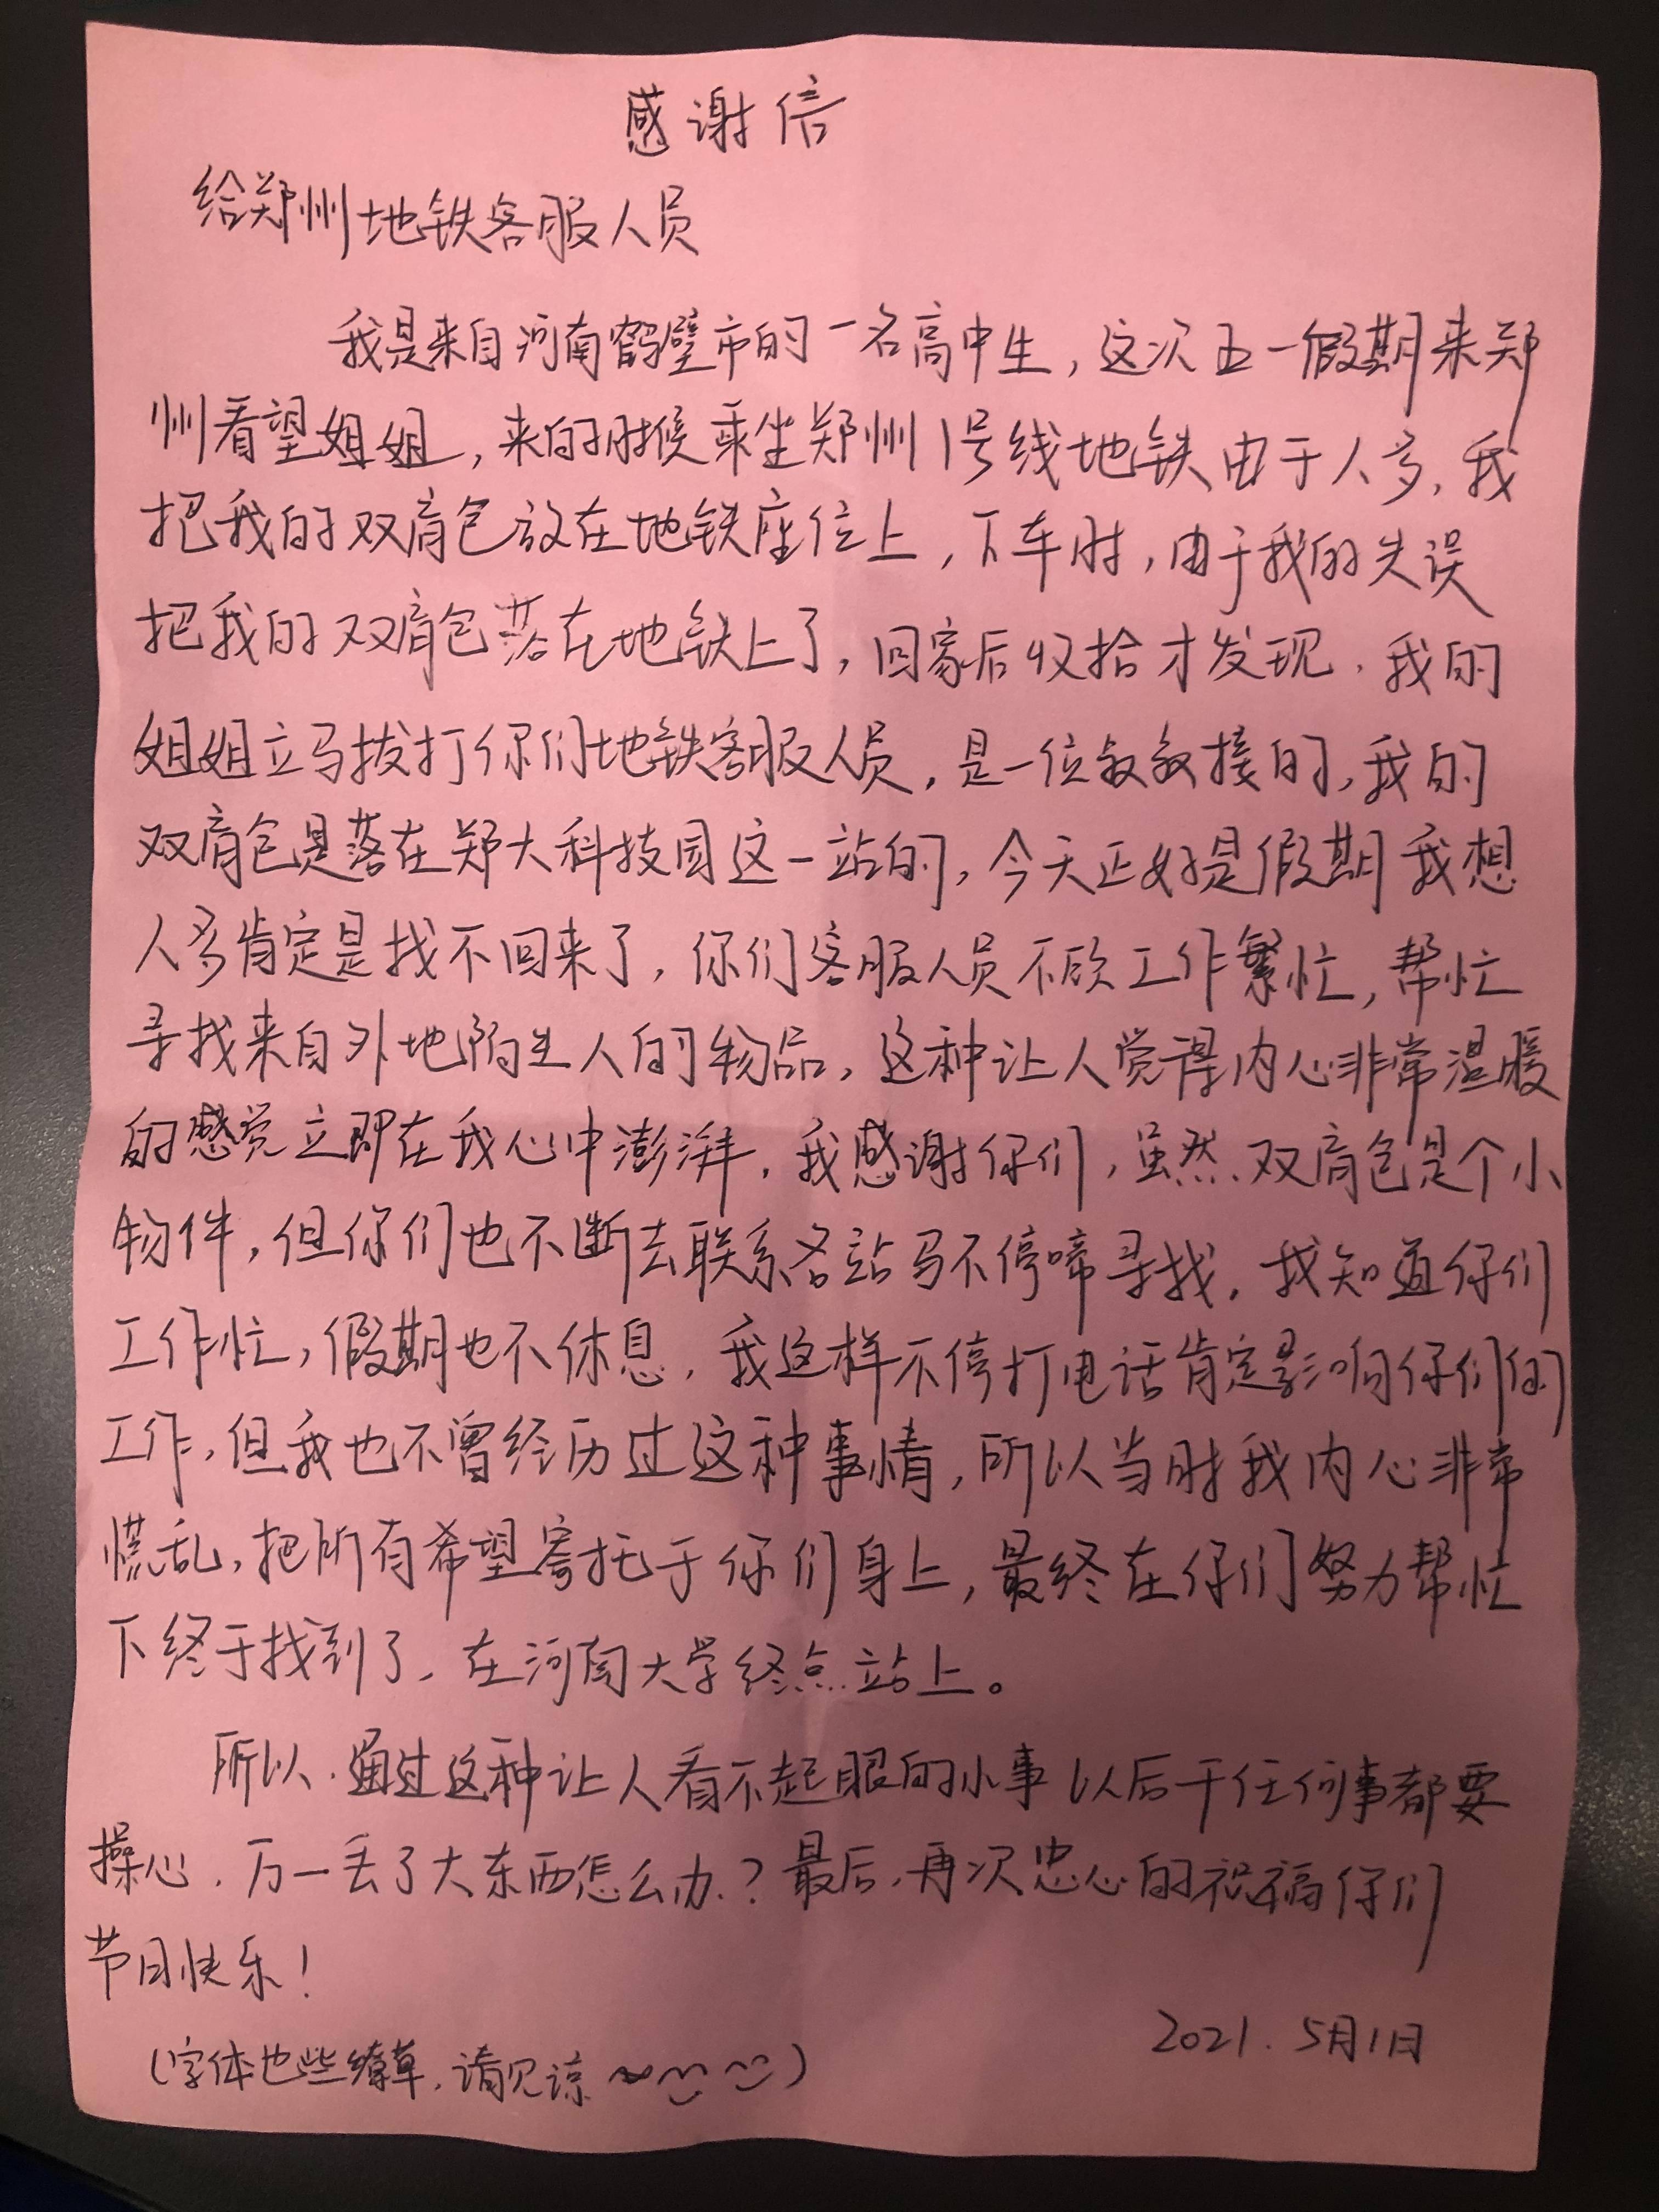 感谢信
给郑州地铁客服人员
我是来自河南鹤壁市的一名高中生，这次五一假期来郑
州看望姐姐，来的时候乘坐郑州1号线地铁由于人多，我
把我的双肩包放在地铁座位上，下车时，由于我的失误
把我的双肩包落在地铁上了，回家后收拾才发现，我的
姐姐立马拔打你们地铁客服人员，是一位叔叔接的，我的
双肩包是落在郑大科技园这一站的，今天正好是假期我想
人多肯定是找不回来了，你们客服人员不顾工作繁忙，帮忙
寻找来自外地陌生人的物品，这种让人觉得内心非常温暖
的感觉立即在我心中澎湃，我感谢你们，虽然，双肩包是个小
物件，但你们也不断去联系各站马不停啼寻找，我知道你们
工作忙，假期也不休息，我这样不停打电话肯定影响你们的
工作，但我也不曾经历过这种事情，所以当时我内心非常
慌乱，把所有希望寄托于你们身上，最终在你们努力帮忙
下终于找到了，在河南大学终点站上。
所以，通过这种让人看不起眼的小事以后干任何事都要
操心，万一丢了大东西怎么办？最后，再次忠心的祝福你们
节日快乐！
2021.5月1日
（字体也些缭草，请见谅～）